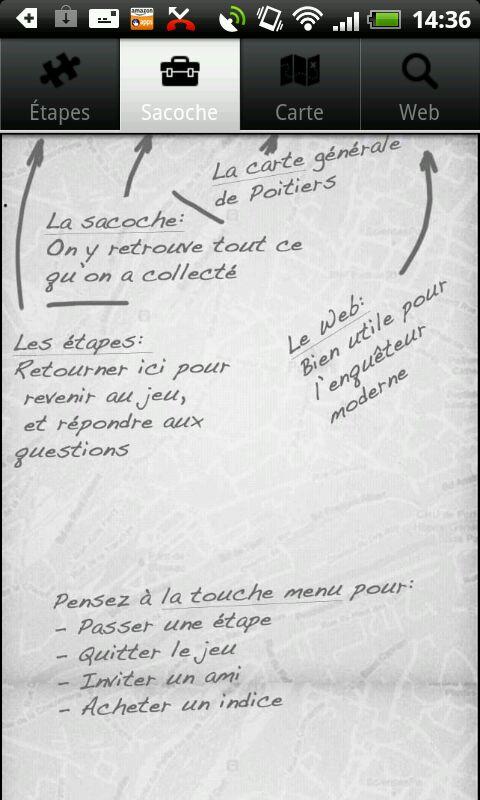 14:36
amazon
apps
Étapes
Sacoche
Carte
Web
La carte générale
de Poitiers
La sacoche:
On y retrouve tout ce
qu'on a collecté
Les étapes:
Retourner ici pour
revenir au jeu,
et répondre aux
questions
Le Web:
Bien utile pour
l'enquêteur
moderne
Pensez à la touche menu pour:
- Passer une étape
- Quitter le jeu
- Inviter un ami
- Acheter un indice